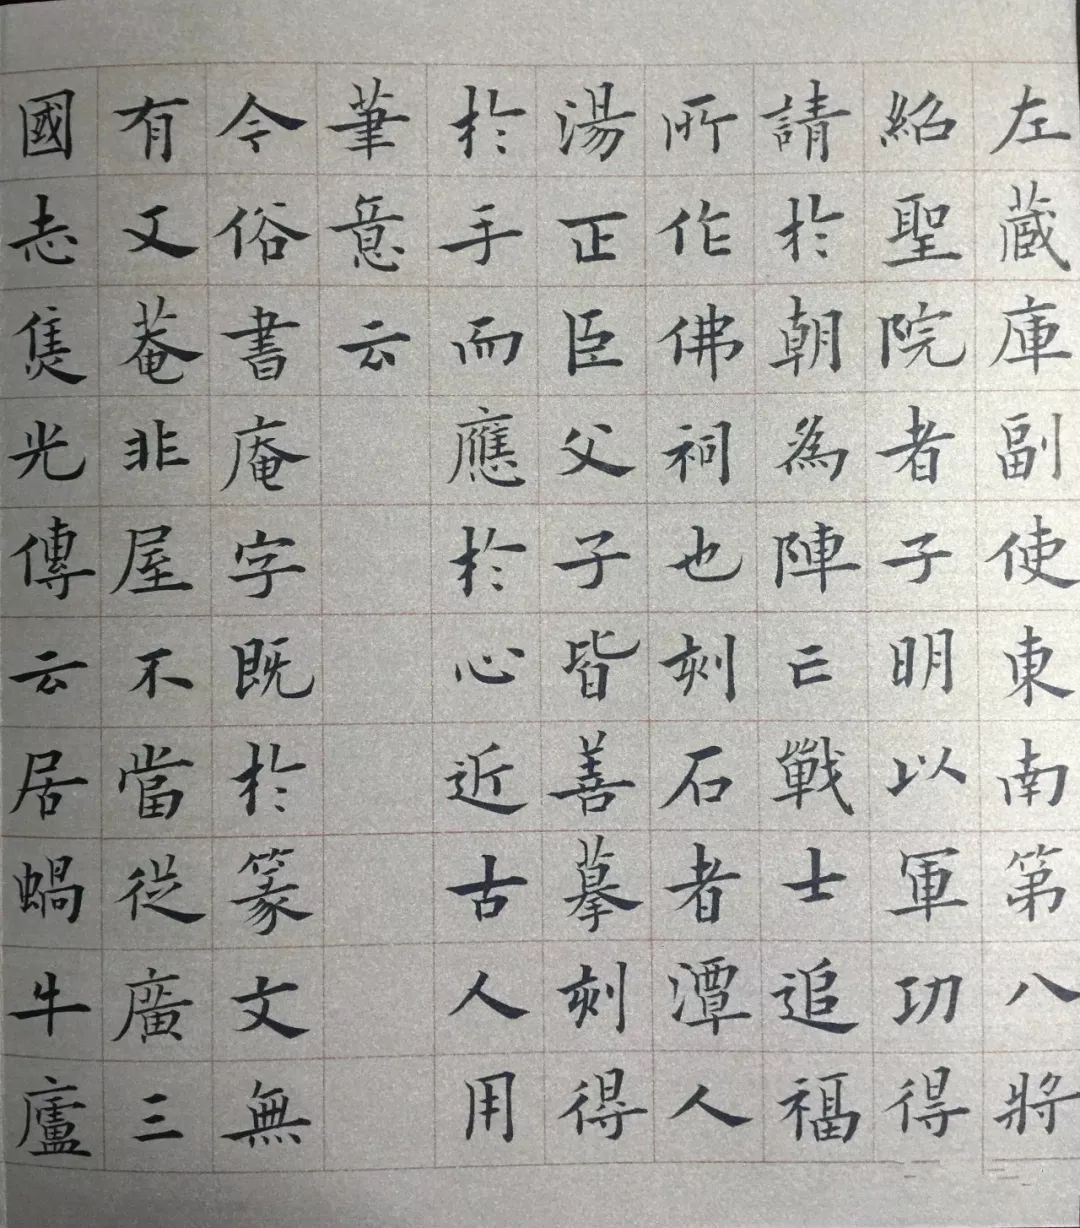 左蔵庫副使東南第八將
紹聖院者子明以軍功得
請於朝為陣亡戰士追福
所作佛祠也刻石者潭人
湯正臣父子皆善摹刻得
於手而應於心近古人用
筆意云
令俗書庵字既於篆文無
有又菴非屋不當從廣三
國志焦光傳云居蝸牛廬